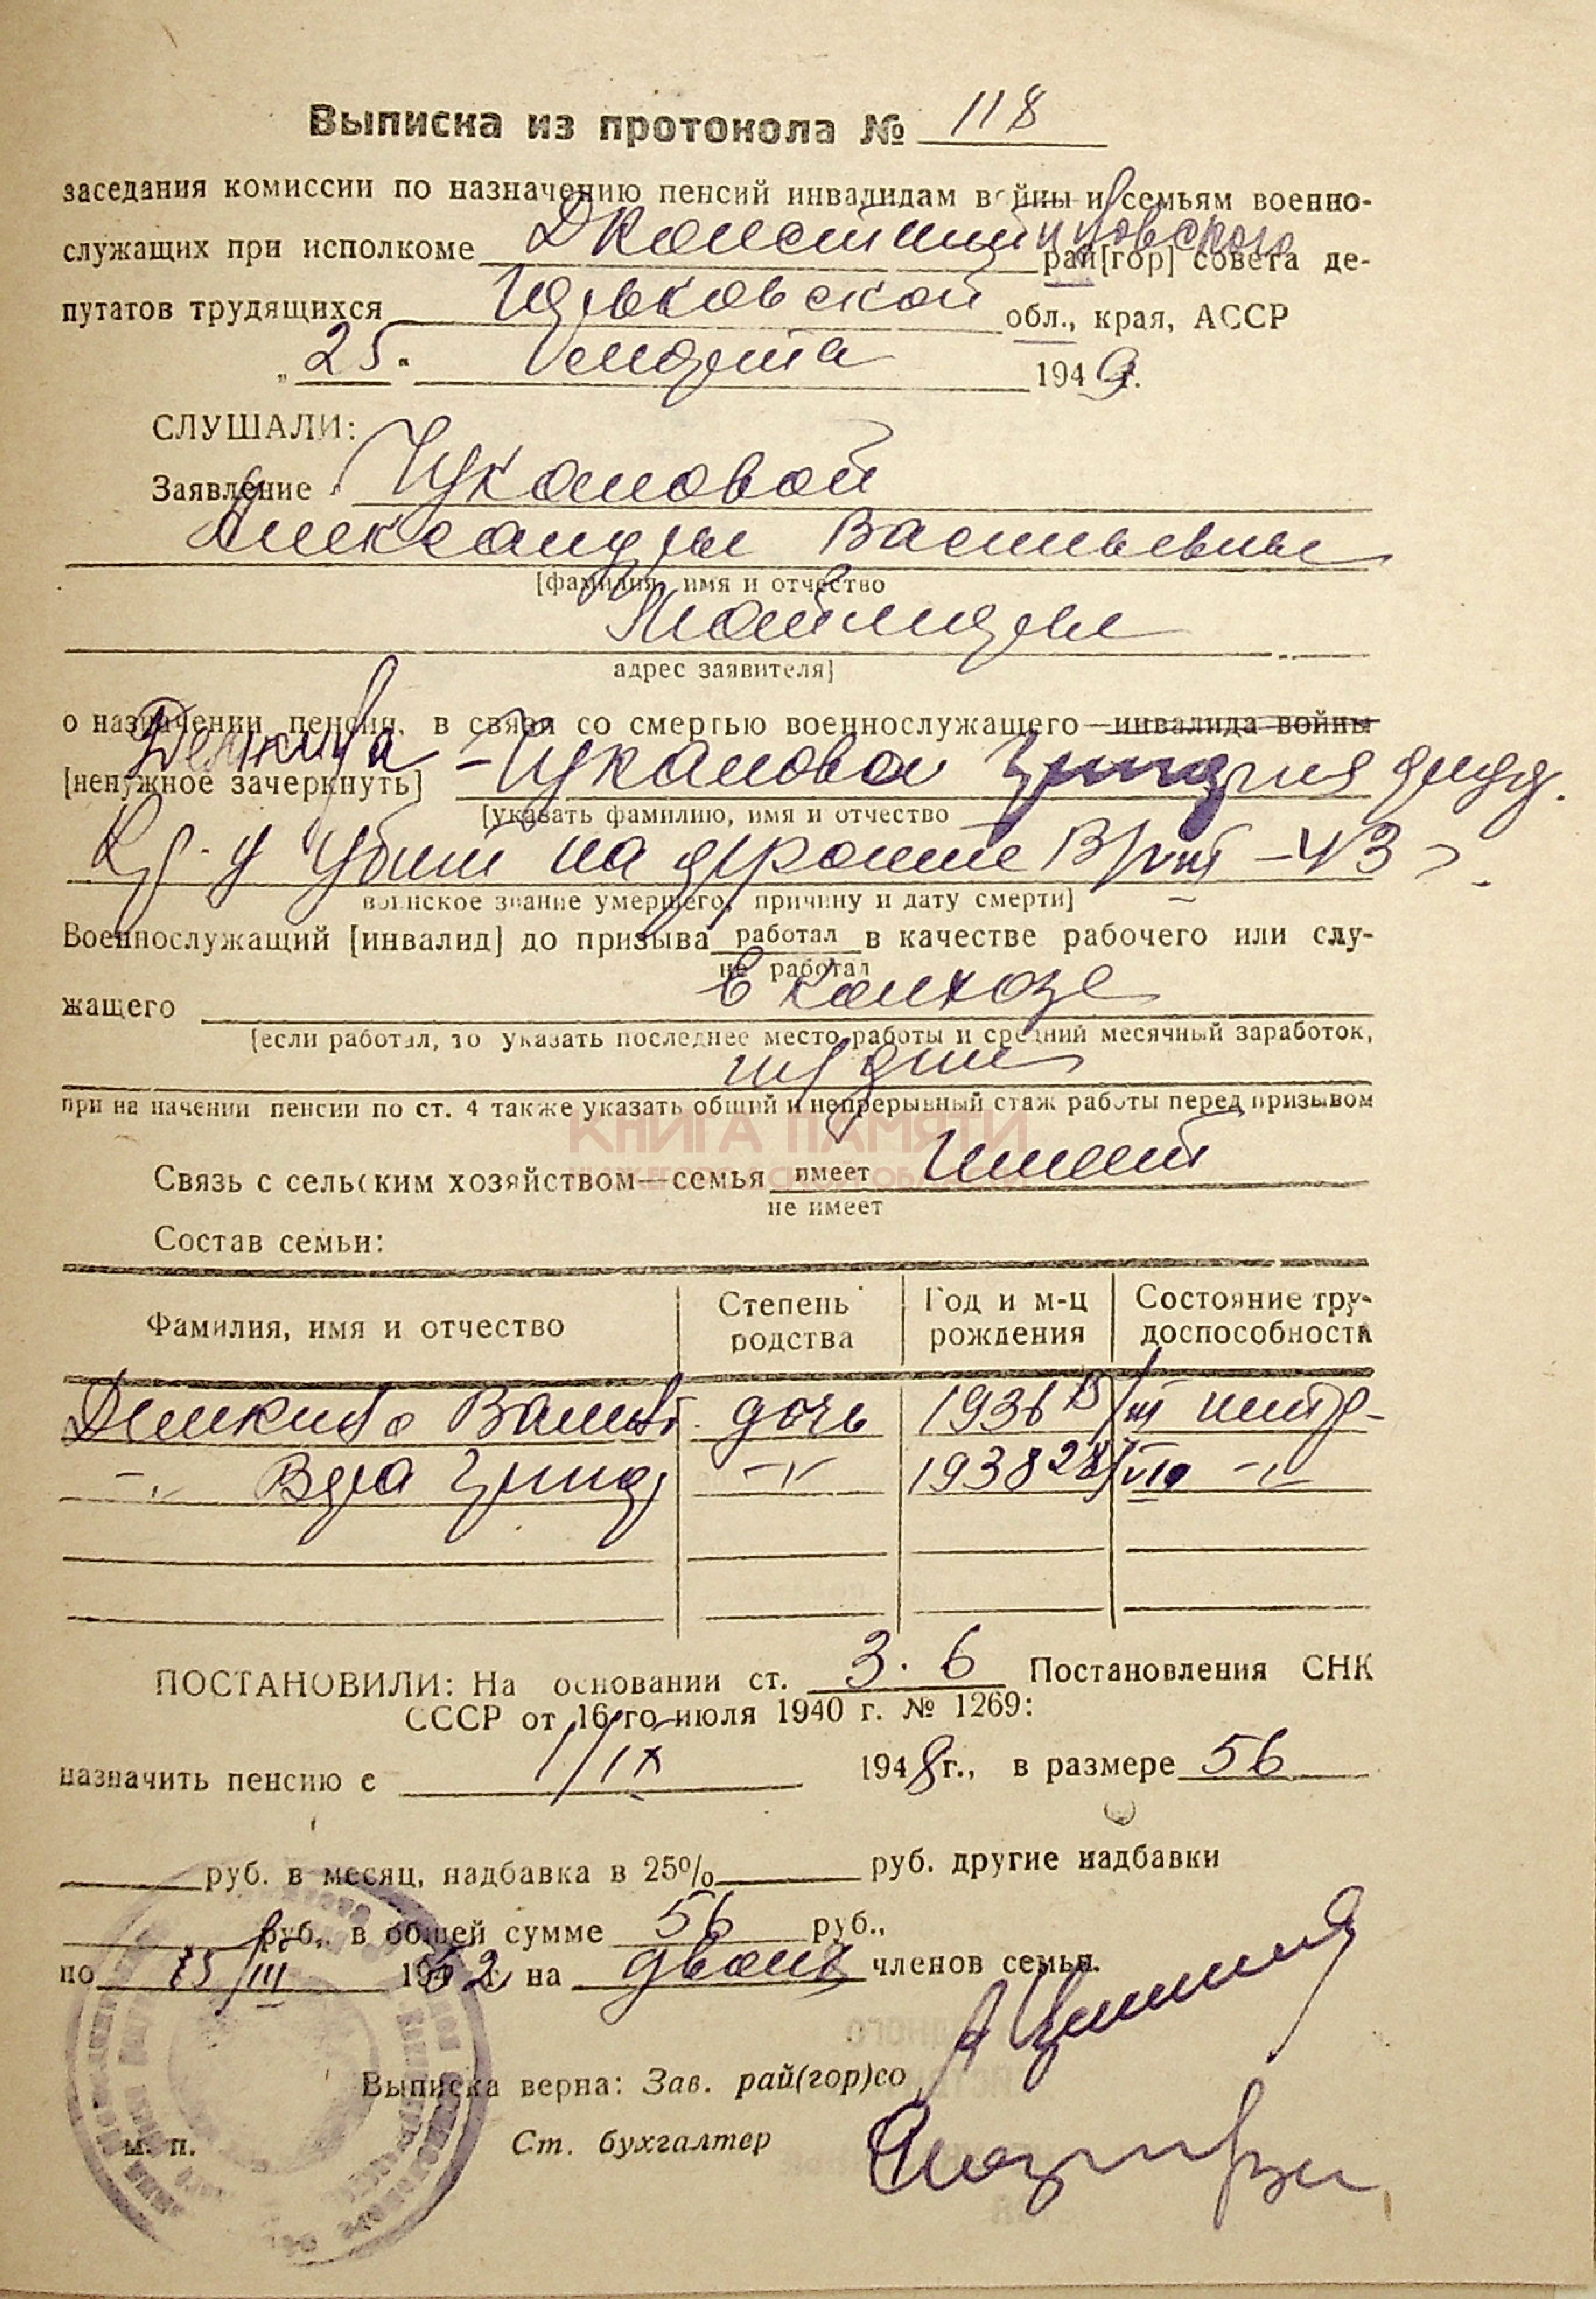 Выписка из протокола № 118
заседания комиссии по назначению пенсий инвалидам войны и семьям военно-
служащих при исполкоме Д Константиновского рай[гор] совета де-
путатов трудящихся Горьковской обл., края, АССР
„25" 1949 г.
СЛУШАЛИ:
Заявление Чукановой
Александры Васильевны
[фамилия, имя и отчество
адрес заявителя]
о назначении пенсии, в связи со смертью военнослужащего — инвалида войны
[ненужное зачеркнуть] Демкива - Чуканова
[указать фамилию, имя и отчество
Кр-ц убит на фронте 43 г.
воинское звание умершего, причину и дату смерти]
Военнослужащий [инвалид] до призыва работал в качестве рабочего или слу-
не работал
жащего в колхозе
[если работал, то указать последнее место работы и средний месячный заработок,
труддни
при назначении пенсии по ст. 4 также указать общий и непрерывный стаж работы перед призывом
КНИГА ПАМЯТИ
НИЖЕГОРОДСКОЙ ОБЛАСТИ
Связь с сельским хозяйством—семья имеет Имеет
не имеет
Состав семьи:
Фамилия, имя и отчество Степень родства Год и м-ц рождения Состояние трудоспособности
дочь 1936 15/III
1938 28/VIII
ПОСТАНОВИЛИ: На основании ст. 3.6 Постановления СНК
СССР от 16 го июля 1940 г. № 1269:
назначить пенсию с 1/IX 1948 г., в размере 56
руб. в месяц, надбавка в 25% руб. другие надбавки
руб., в общей сумме 56 руб.,
по 15/III 1952 на двоих членов семьи.
Выписка верна: Зав. рай(гор)со
м. п. Ст. бухгалтер